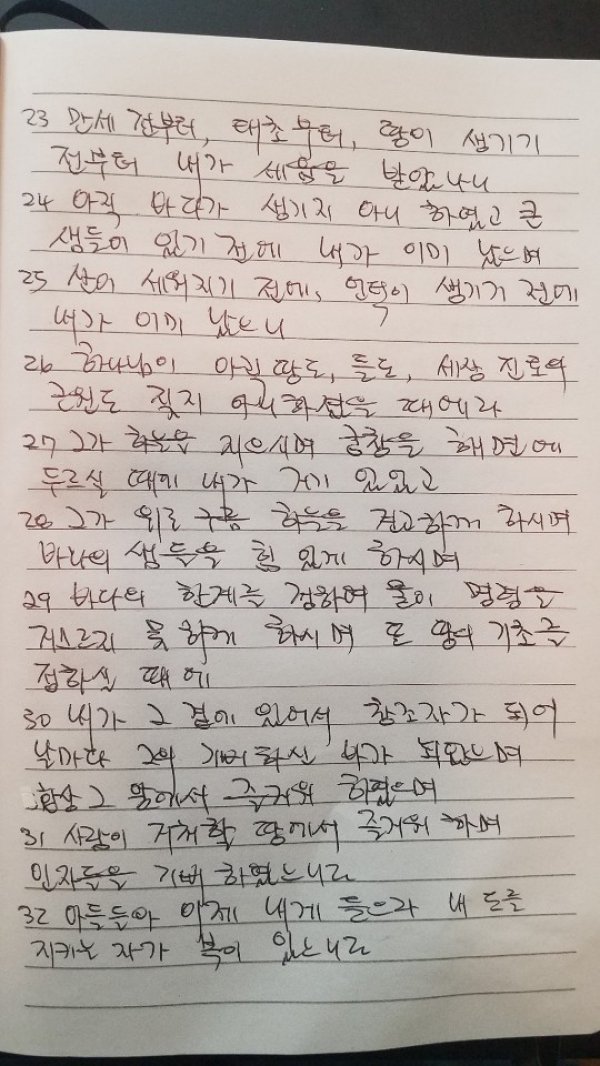 23 만세 전부터, 태초부터, 땅이 생기기
전부터 내가 세움을 받았나니
24 아직 바다가 생기지 아니 하였고 큰
샘들이 있기 전에 내가 이미 났으며
25 산이 세워지기 전에, 언덕이 생기기 전에
내가 이미 났으니
26 하나님이 아직 땅도, 들도, 세상 진토의
근원도 짓지 아니하셨을 때에라
27 그가 하늘을 지으시며 궁창을 해면에
두르실 때에 내가 거기 있었고
28 그가 위로 구름 하늘을 견고하게 하시며
바다의 샘들을 힘 있게 하시며
29 바다의 한계를 정하여 물이 명령을
거스르지 못하게 하시며 또 땅의 기초를
정하실 때에
30 내가 그 곁에 있어서 창조자가 되어
날마다 그의 기뻐하신 바가 되었으며
항상 그 앞에서 즐거워 하였으며
31 사람이 거처할 땅에서 즐거워 하며
인자들을 기뻐 하였느니라
32 아들들아 이제 내게 들으라 내 도를
지키는 자가 복이 있느니라